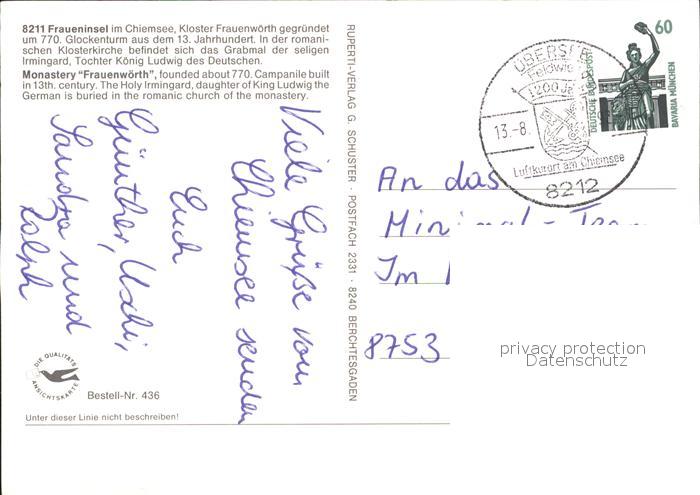 8211 Fraueninsel im Chiemsee, Kloster Frauenwörth gegründet
um 770. Glockenturm aus dem 13. Jahrhundert. In der romani-
schen Klosterkirche befindet sich das Grabmal der seligen
Irmingard, Tochter König Ludwig des Deutschen.
Monastery "Frauenwörth", founded about 770. Campanile built
in 13th. century. The Holy Irmingard, daughter of King Ludwig the
German is buried in the romanic church of the monastery.
Viele Grüße vom
Chiemsee senden
Euch
Günther, Uschi,
Sandra und
Ralph
DIE QUALITÄTS
ANSICHTSKARTE
Bestell-Nr. 436
Unter dieser Linie nicht beschreiben!
RUPERTI-VERLAG G. SCHUSTER · POSTFACH 2331 · 8240 BERCHTESGADEN
ÜBERSEE
Feldwies
1200 Ja
13.-8.
Luftkurort am Chiemsee
8212
60
DEUTSCHE BUNDESPOST
BAVARIA MÜNCHEN
An das
Minimal-Team
Im
8753
privacy protection
Datenschutz